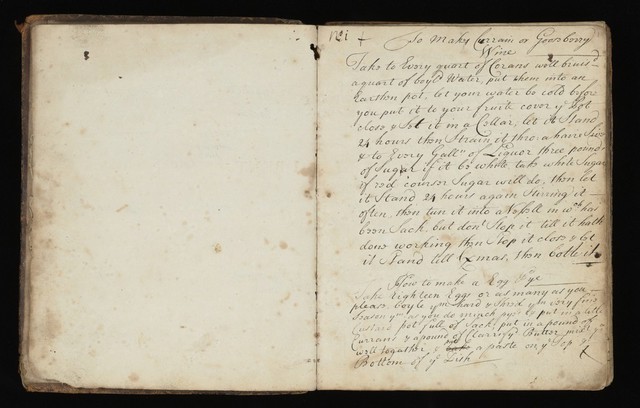 No i
To Make Currain or Goosberry
Wine
Take to Every quart of Corans well bruisd
a quart of boyld Water, put them into an
Earthen pot, let your water be cold before
you put it to your fruite cover ye Pot
close & Set it in a Cellar, let it Stand
24 hours then Strain it thro: a haire Sive
& to Every Galln of Liquor three pound
of Sugar if it be white take white Sugar
if red courser Sugar will do, then let
it Stand 24 hours again Stirring it
often, then tun it into a Vessell in wch has
been Sack, but dont Stop it till it hath
done working then Stop it close & let
it Stand till Xmas, then bottle it.
How to make a Egg Pye
Take Eighteen Eggs or as many as you
please, boyle ym hard & Shred ym very fine
Season ym as you do minch pys & put in a little
Custard pot full of Sack, put in a pound of
Currans & a pound of Clarifyd Butter, mix ym
well together, & a paste on ye Top &
Bottom of ye Dish